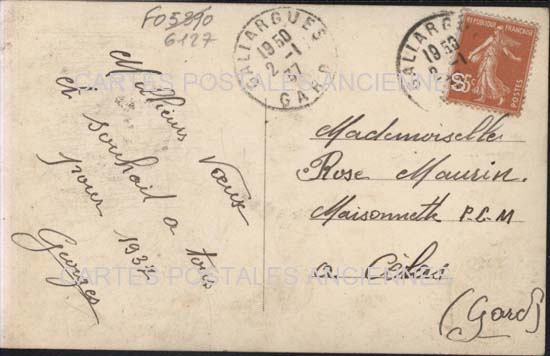 F05890
6127
GALLARGUES
19 50
2 -1
37
GARD
GALLARGUES
19 50
2 -1
REPUBLIQUE FRANÇAISE
POSTES
CARTES POSTALES ANCIENNES
Meilleurs Voeux
et souhait a tous
pour 1937
Georges
Mademoiselle
Rose Maurin
Maisonnette P.L.M
a
(Gard)
CARTES POSTALES ANCIENNES